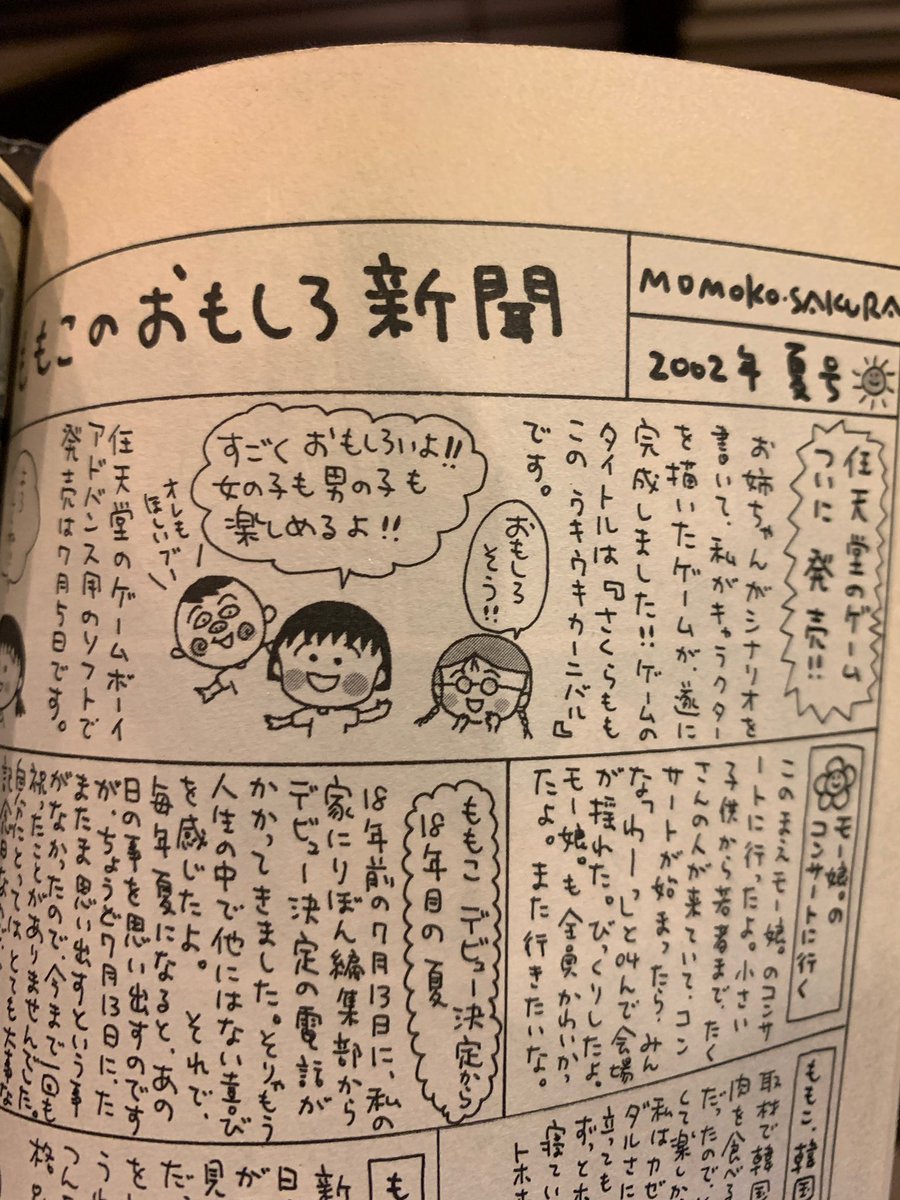 ももこのおもしろ新聞
MOMOKO・SAKURA
2002年 夏号
任天堂のゲーム
ついに発売!!
お姉ちゃんがシナリオを
書いて、私がキャラクター
を描いたゲームが、遂に
完成しました!!ゲームの
タイトルは『さくらもも
このウキウキカーニバル』
です。
おもしろ
そう!!
すごくおもしろいよ!!
女の子も男の子も
楽しめるよ!!
オレも
ほしいブー
任天堂のゲームボーイ
アドバンス用のソフトで
発売は7月5日です。
モー娘。の
コンサートに行く
このまえモー娘。のコンサ
ートに行ったよ。小さい
子供から若者まで、たく
さんの人が来ていて、コン
サートが始まったら、みん
なっわーっしと叫んで会場
が揺れた。びっくりしたよ。
モー娘。も全員かわいかっ
たよ。また行きたいな。
ももこデビュー決定から
18年目の夏
18年前の7月13日に、私の
家にりぼん編集部から
デビュー決定の電話が
かかってきました。そりゃもう
人生の中で他にはない喜び
を感じたよ。それで、
毎年夏になると、あの
日の事を思い出すのです
が、ちょうど7月13日に、た
またま思い出すという事
がなかったので、今まで1回も
祝ったことがありませんでした。
自分にとっては、とても大事な
ももこ、韓国
取材で韓国
肉を食べる
だったので、
して楽しか
私はカゼ
ダルさに
立っても
ずっとホ
寝てい
トホホ
も
新
日
が
見
だ